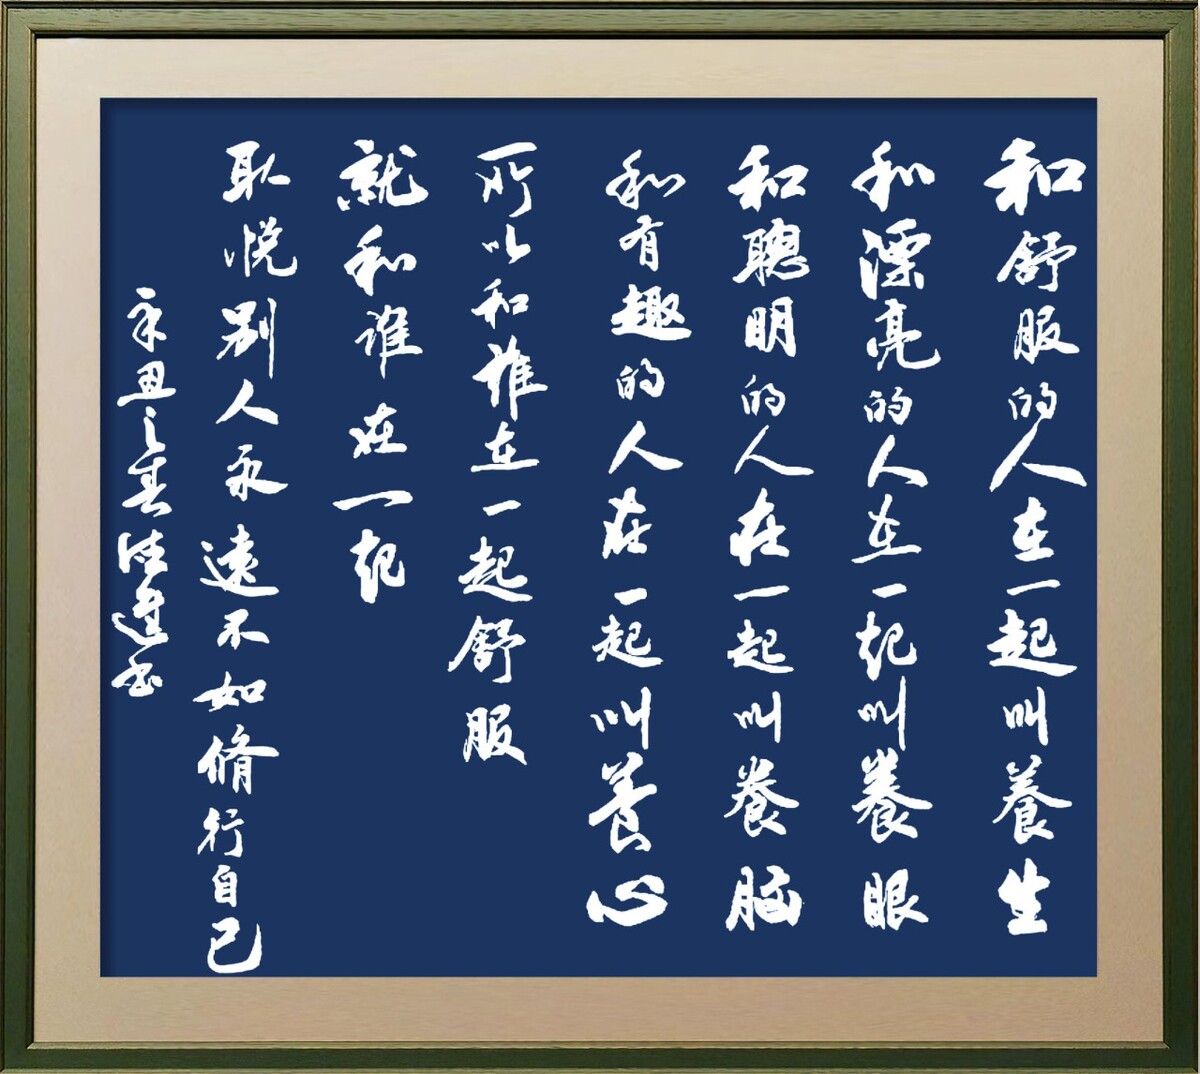 和舒服的人在一起叫養生
和漂亮的人在一起叫養眼
和聰明的人在一起叫養脑
和有趣的人在一起叫養心
所以和誰在一起舒服
就和谁在一起
取悦别人永遠不如脩行自己
辛丑之春 書